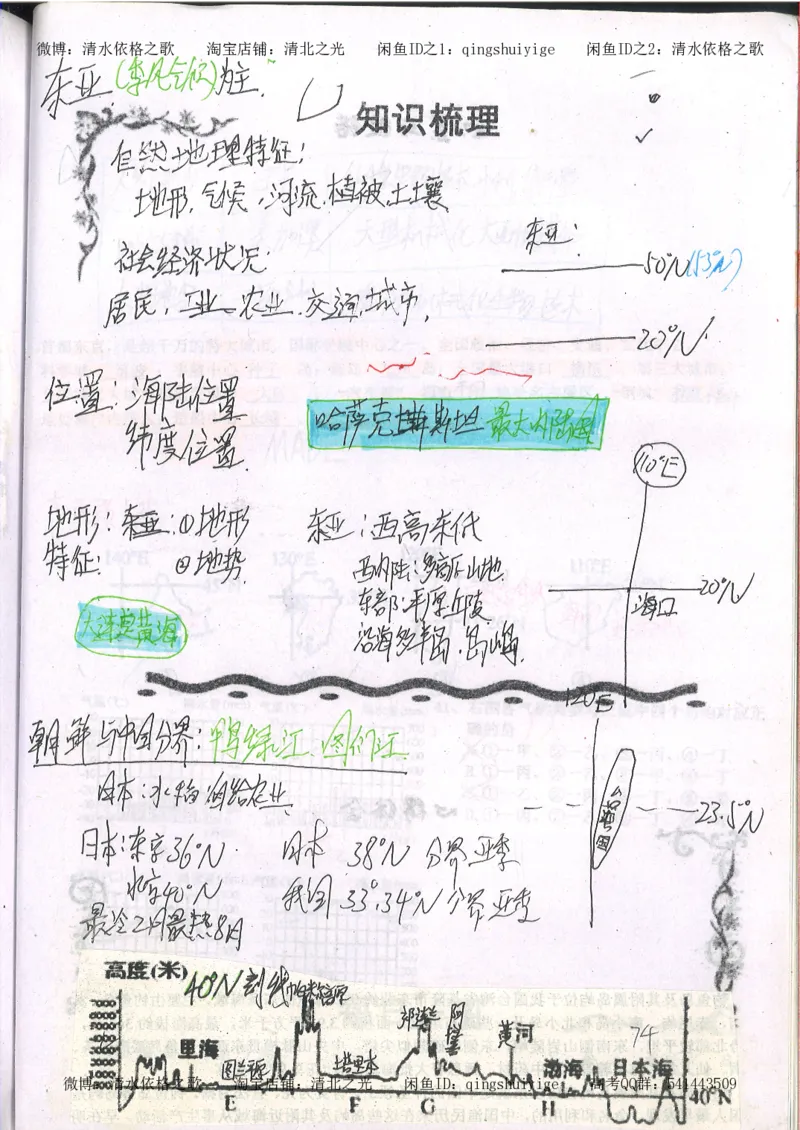 微博：清水依格之歌 淘宝店铺：清北之光 闲鱼ID之1：qingshuiyige 闲鱼ID之2：清水依格之歌
东亚(季风气候)为主.
知识梳理
自然地理特征：
地形，气候，河流，植被，土壤
社会经济状况：
居民，工业，农业，交通，城市，
东亚：
50°N(53°N)
20°N
位置：海陆位置
纬度位置
哈萨克斯坦 最大内陆国
110°E
20°N
海口
地形：东亚：①地形
特征： ②地势
东亚：西高东低
西内陆：多高原山地
东部：平原丘陵
沿海多半岛，岛屿
大连黄海
120°E
朝鲜与中国分界：鸭绿江，图们江
日本：水稻
台湾
23.5°N
日本：东京36°N
日本 38°N 分界
北京40°N
我国 33°,34°N 分界
最冷2月最热8月
高度(米) 40°N剖线
帕米尔高原
里海 图兰 塔里木 黄河 渤海 日本海
74
微博：清水依格之歌 淘宝店铺：清北之光 闲鱼ID之1：qingshuiyige 备考QQ群：544443509
E F G H 40°N